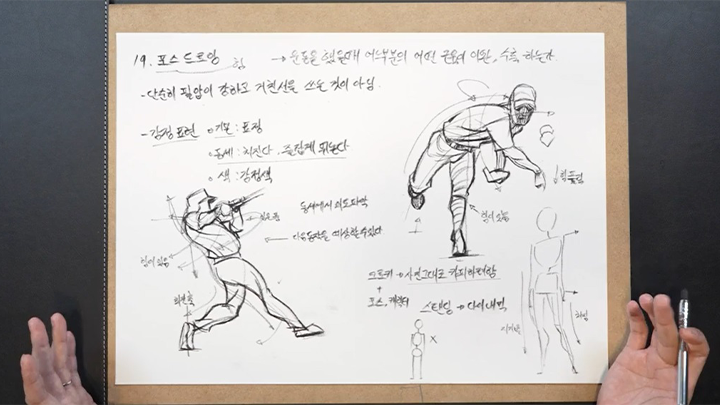 19. 포스 드로잉 힘 → 운동을 했을때 어느부분의 어떤 근육이 이완, 수축 하는가
- 단순히 필압이 강하고 거친선을 쓰는 것이 아님.
- 감정표현 o 기본 : 표정
o 동세 : 처진다. 즐겁게 뛰논다
o 색 : 감정색
동세에서 의도파악
← 다음동작을 예상할 수 있다
힘이 있음
회전축
힘이 있음
힘들림
크로키 → 사진그대로 카피하려함
+
포스, 캐릭터
스탠딩 →
x